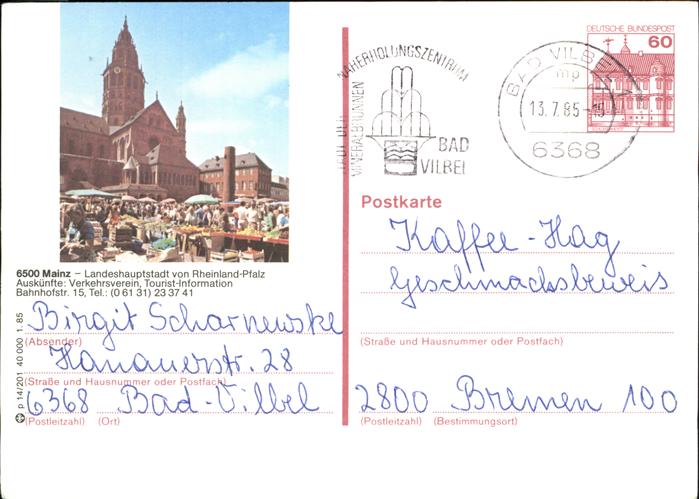 DEUTSCHE BUNDESPOST
60
NAHERHOLUNGSZENTRUM
STADT DER
MINERALBRUNNEN
BAD
VILBEL
BAD VILBEL 1
mp
13.7.85-15
6368
Postkarte
Kaffee-Hag
Geschmacksbeweis
(Straße und Hausnummer oder Postfach)
2800 Bremen 100
(Postleitzahl) (Bestimmungsort)
6500 Mainz – Landeshauptstadt von Rheinland-Pfalz
Auskünfte: Verkehrsverein, Tourist-Information
Bahnhofstr. 15, Tel.: (0 61 31) 23 37 41
Birgit Scharnewske
(Absender)
Hanauerstr. 28
(Straße und Hausnummer oder Postfach)
6368 Bad-Vilbel
(Postleitzahl) (Ort)
p 14/201 40 000 1. 85